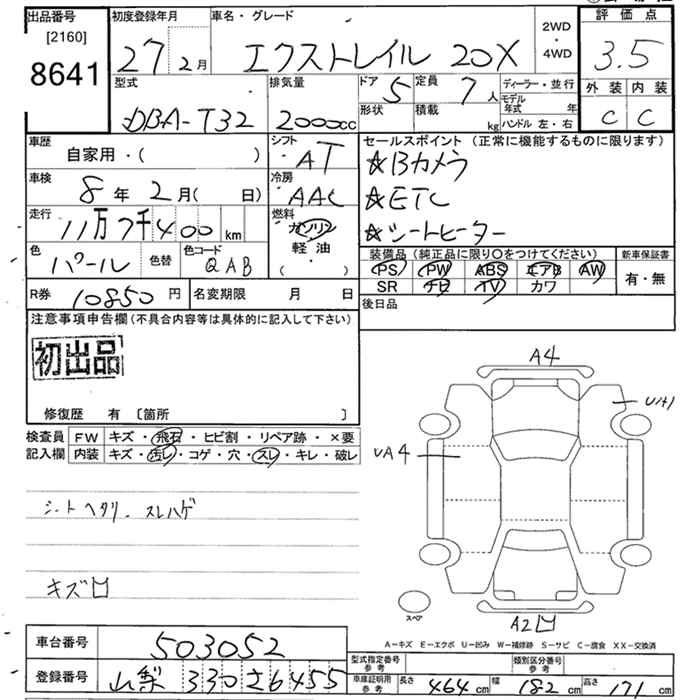 出品番号 [2160] 8641
初度登録年月 27年 2月
車名・グレード エクストレイル 20X
2WD・4WD
評価点 3.5
外装 C 内装 C
型式 DBA-T32
排気量 2000cc
ドア 5 定員 7人
形状 積載 kg
ディーラー・並行
モデル年式 年
ハンドル 左・右
車歴 自家用・( )
シフト AT
セールスポイント (正常に機能するものに限ります)
☆Bカメラ
☆ETC
☆シートヒーター
車検 8年 2月( 日)
冷房 AAC
走行 11万7千400km
燃料 ガソリン 軽油 ( ・ )
色 パール 色替 色コード QAB
装備品 (純正品に限り〇をつけてください)
PS PW ABS エアB AW
SR ナビ TV カワ
新車保証書 有・無
R券 10850円 名変期限 月 日
後日品
注意事項申告欄 (不具合内容等は具体的に記入して下さい)
初出品
修復歴 有 〔箇所 〕
検査員記入欄
FW キズ・飛石・ヒビ割・リペア跡・×要
内装 キズ・汚レ・コゲ・穴・スレ・キレ・破レ
シートヘタリ スレハゲ
キズ凹
A4
UA4
A2凹
スペア
A-キズ E-エクボ U-凹み W-補修跡 S-サビ C-腐食 XX-交換済
車台番号 503052
登録番号 山梨 330 さ 6455
型式指定番号 参考 類別区分番号 参考
車庫証明用 参考 長さ 464cm 幅 182cm 高さ 171cm